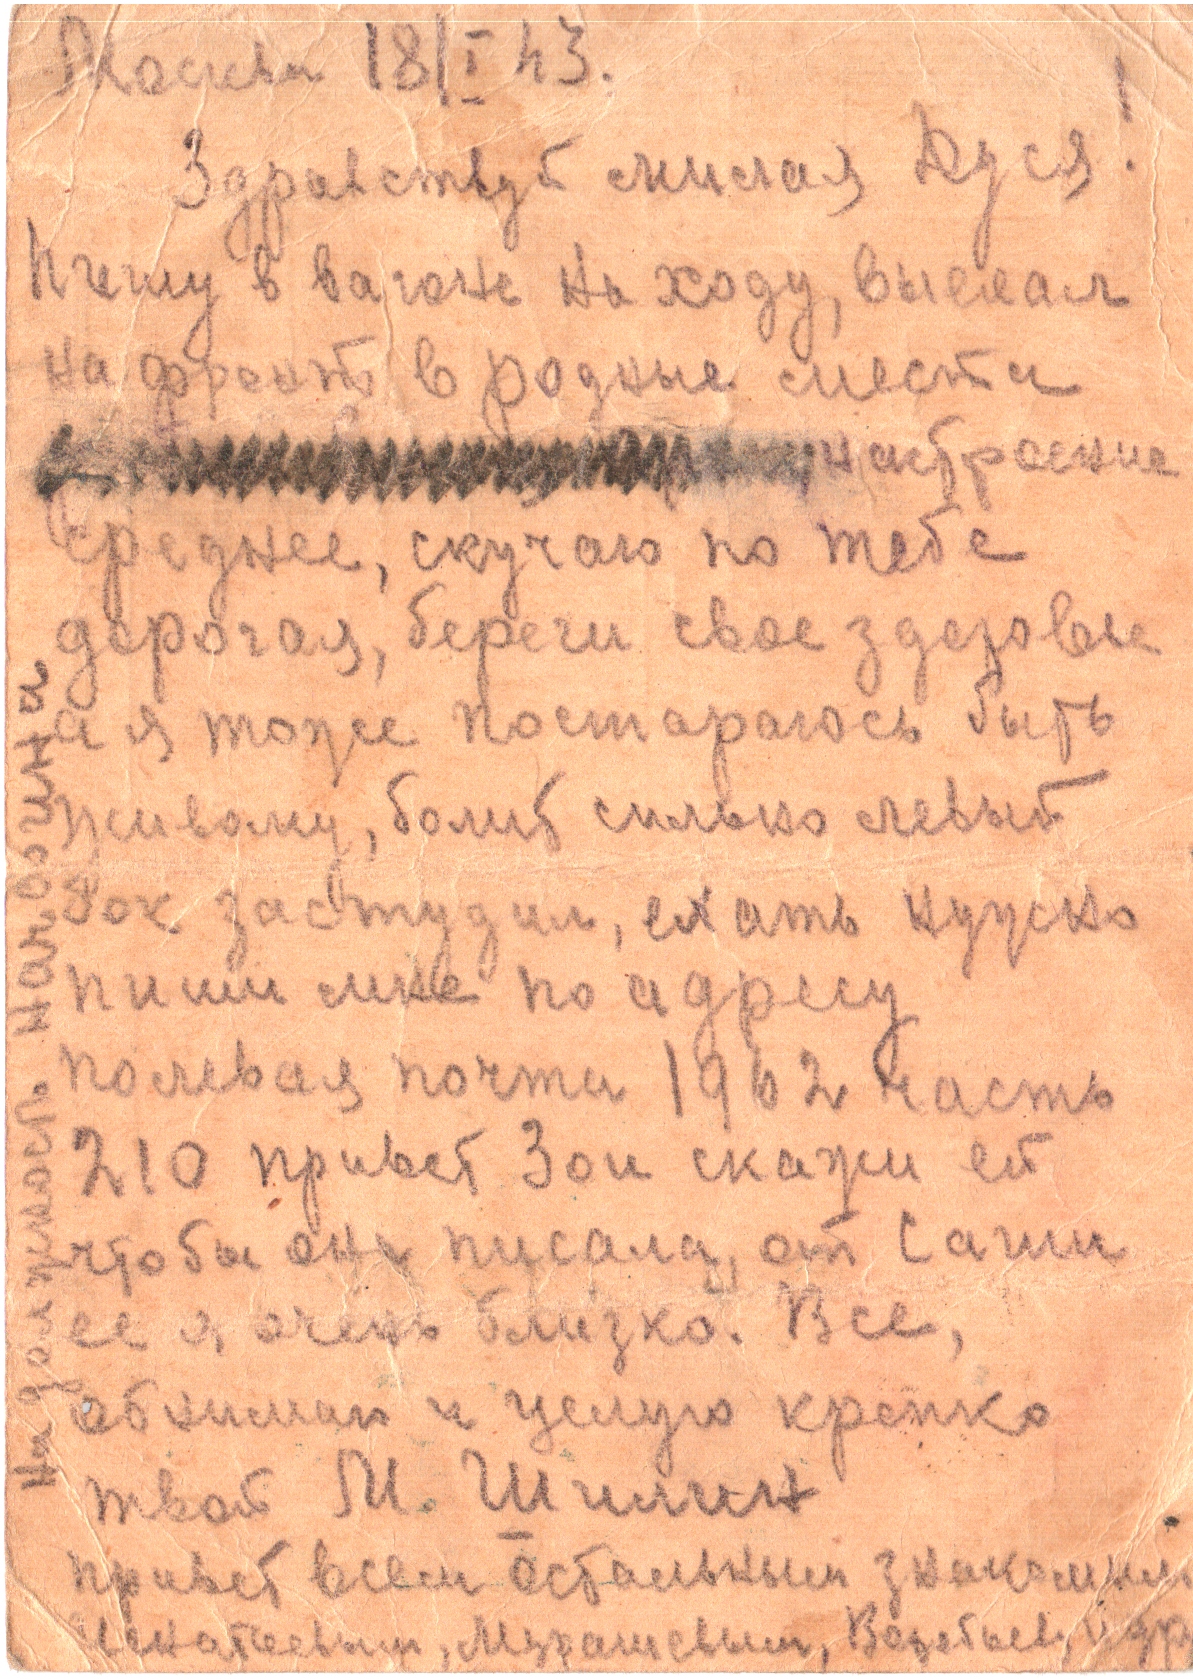 Москва 18/I 43.
Здравствуй милая Дуся!
Пишу в вагоне на ходу, выехал
на фронт в родные места
настроение
среднее, скучаю по тебе
дорогая, береги свое здоровье
а я тоже постараюсь быть
живому, болит сильно левый
бок застудил, ехать нужно
пиши мне по адресу
полевая почта 1962 часть
210 привет Зои скажи ей
чтобы она писала, от Саши
ее я очень близко. Все,
обнимаю и целую крепко
твой М. Шилин
привет всем остальным знакомым
Игнатьевым, Мурашевым, Воробьев, и др
на должность нач. огина